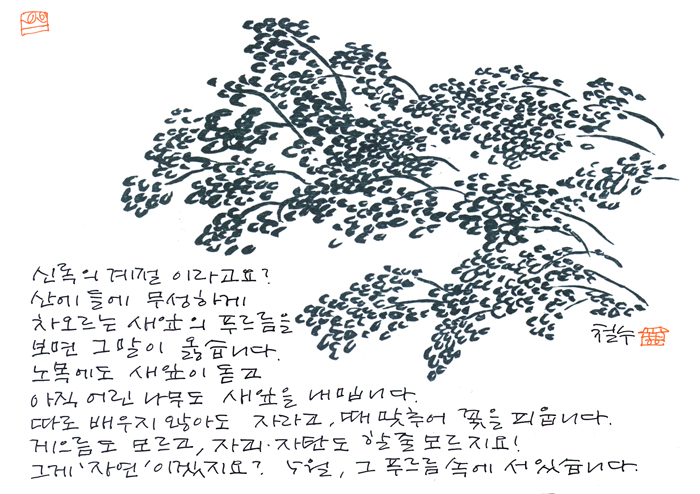 신록의 계절 이라고요?
산에 들에 무성하게
차오르는 새잎의 푸르름을
보면 그말이 옳습니다.
노목에도 새잎이 돋고
아직 어린 나무도 새잎을 내밉니다.
따로 배우지 않아도 자라고, 때 맞추어 꽃을 피웁니다.
게으름도 모르고, 자괴·자탄도 할줄 모르지요!
그게 '자연'이겠지요? 5월, 그 푸르름 속에 서 있습니다.
철수